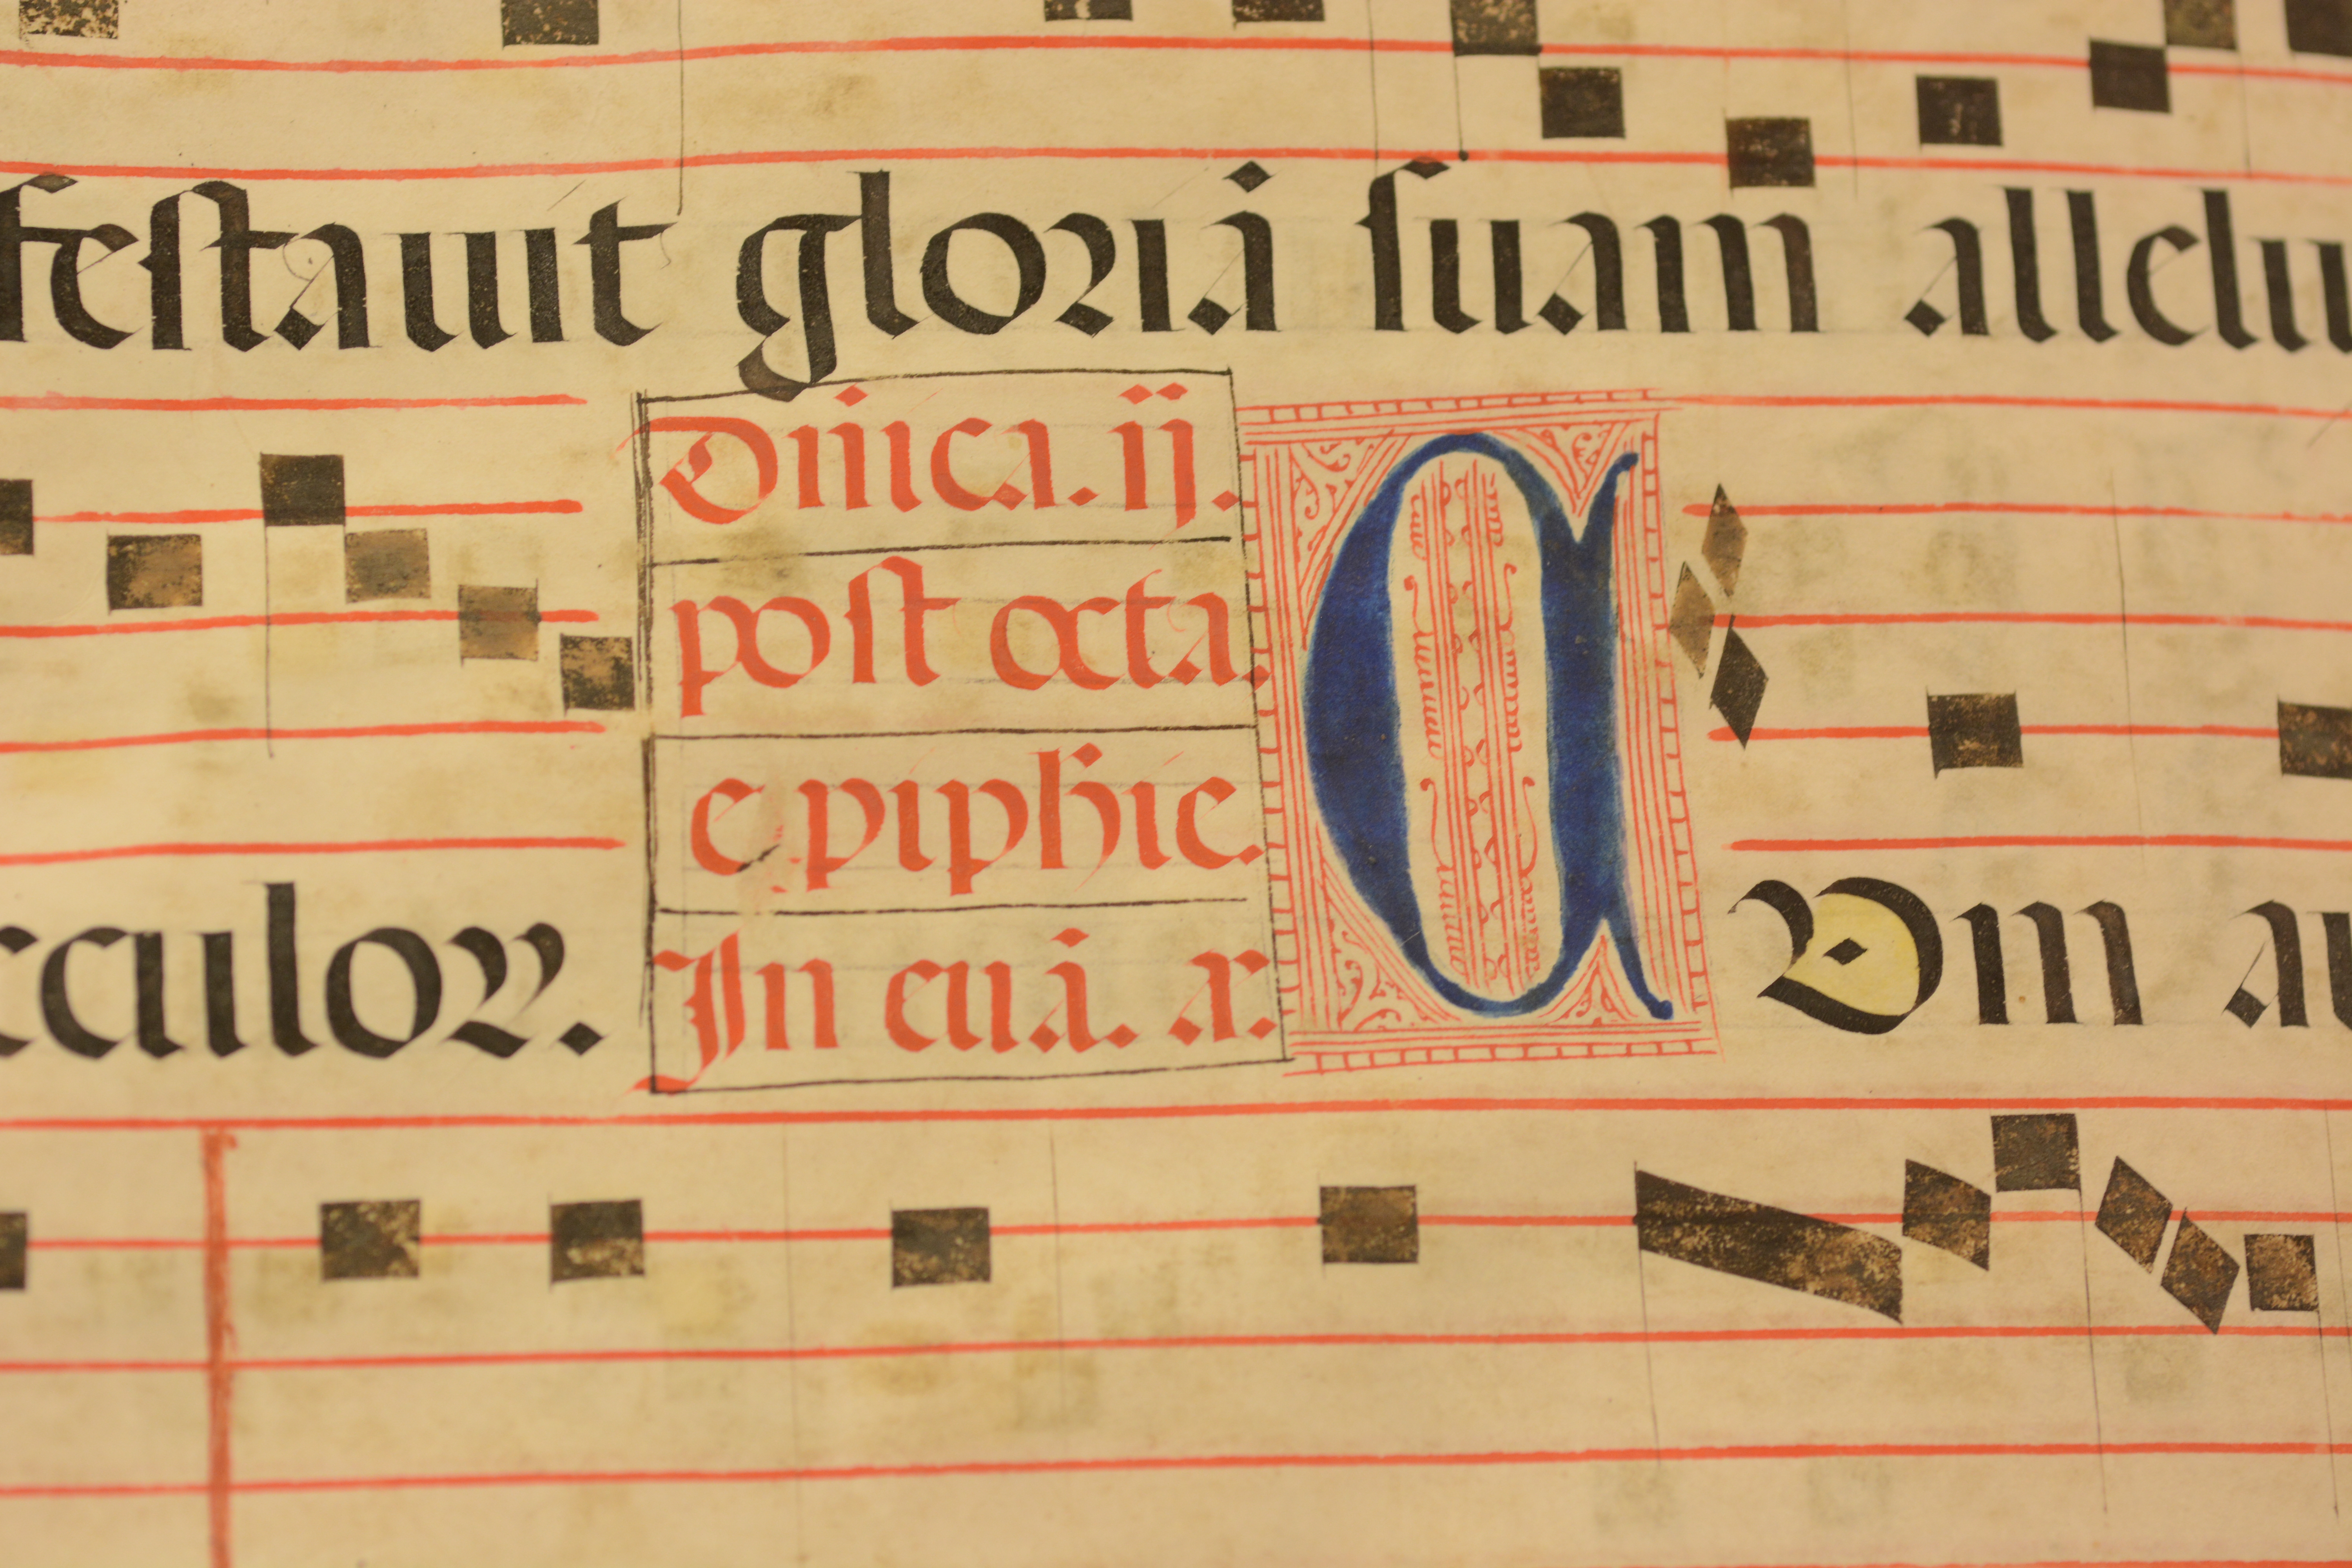 festauit gloriā suam allelu
Dn̄ica. ij.
post octa.
epiphie.
In euā. a͞.
culoꝝ. A Dm au